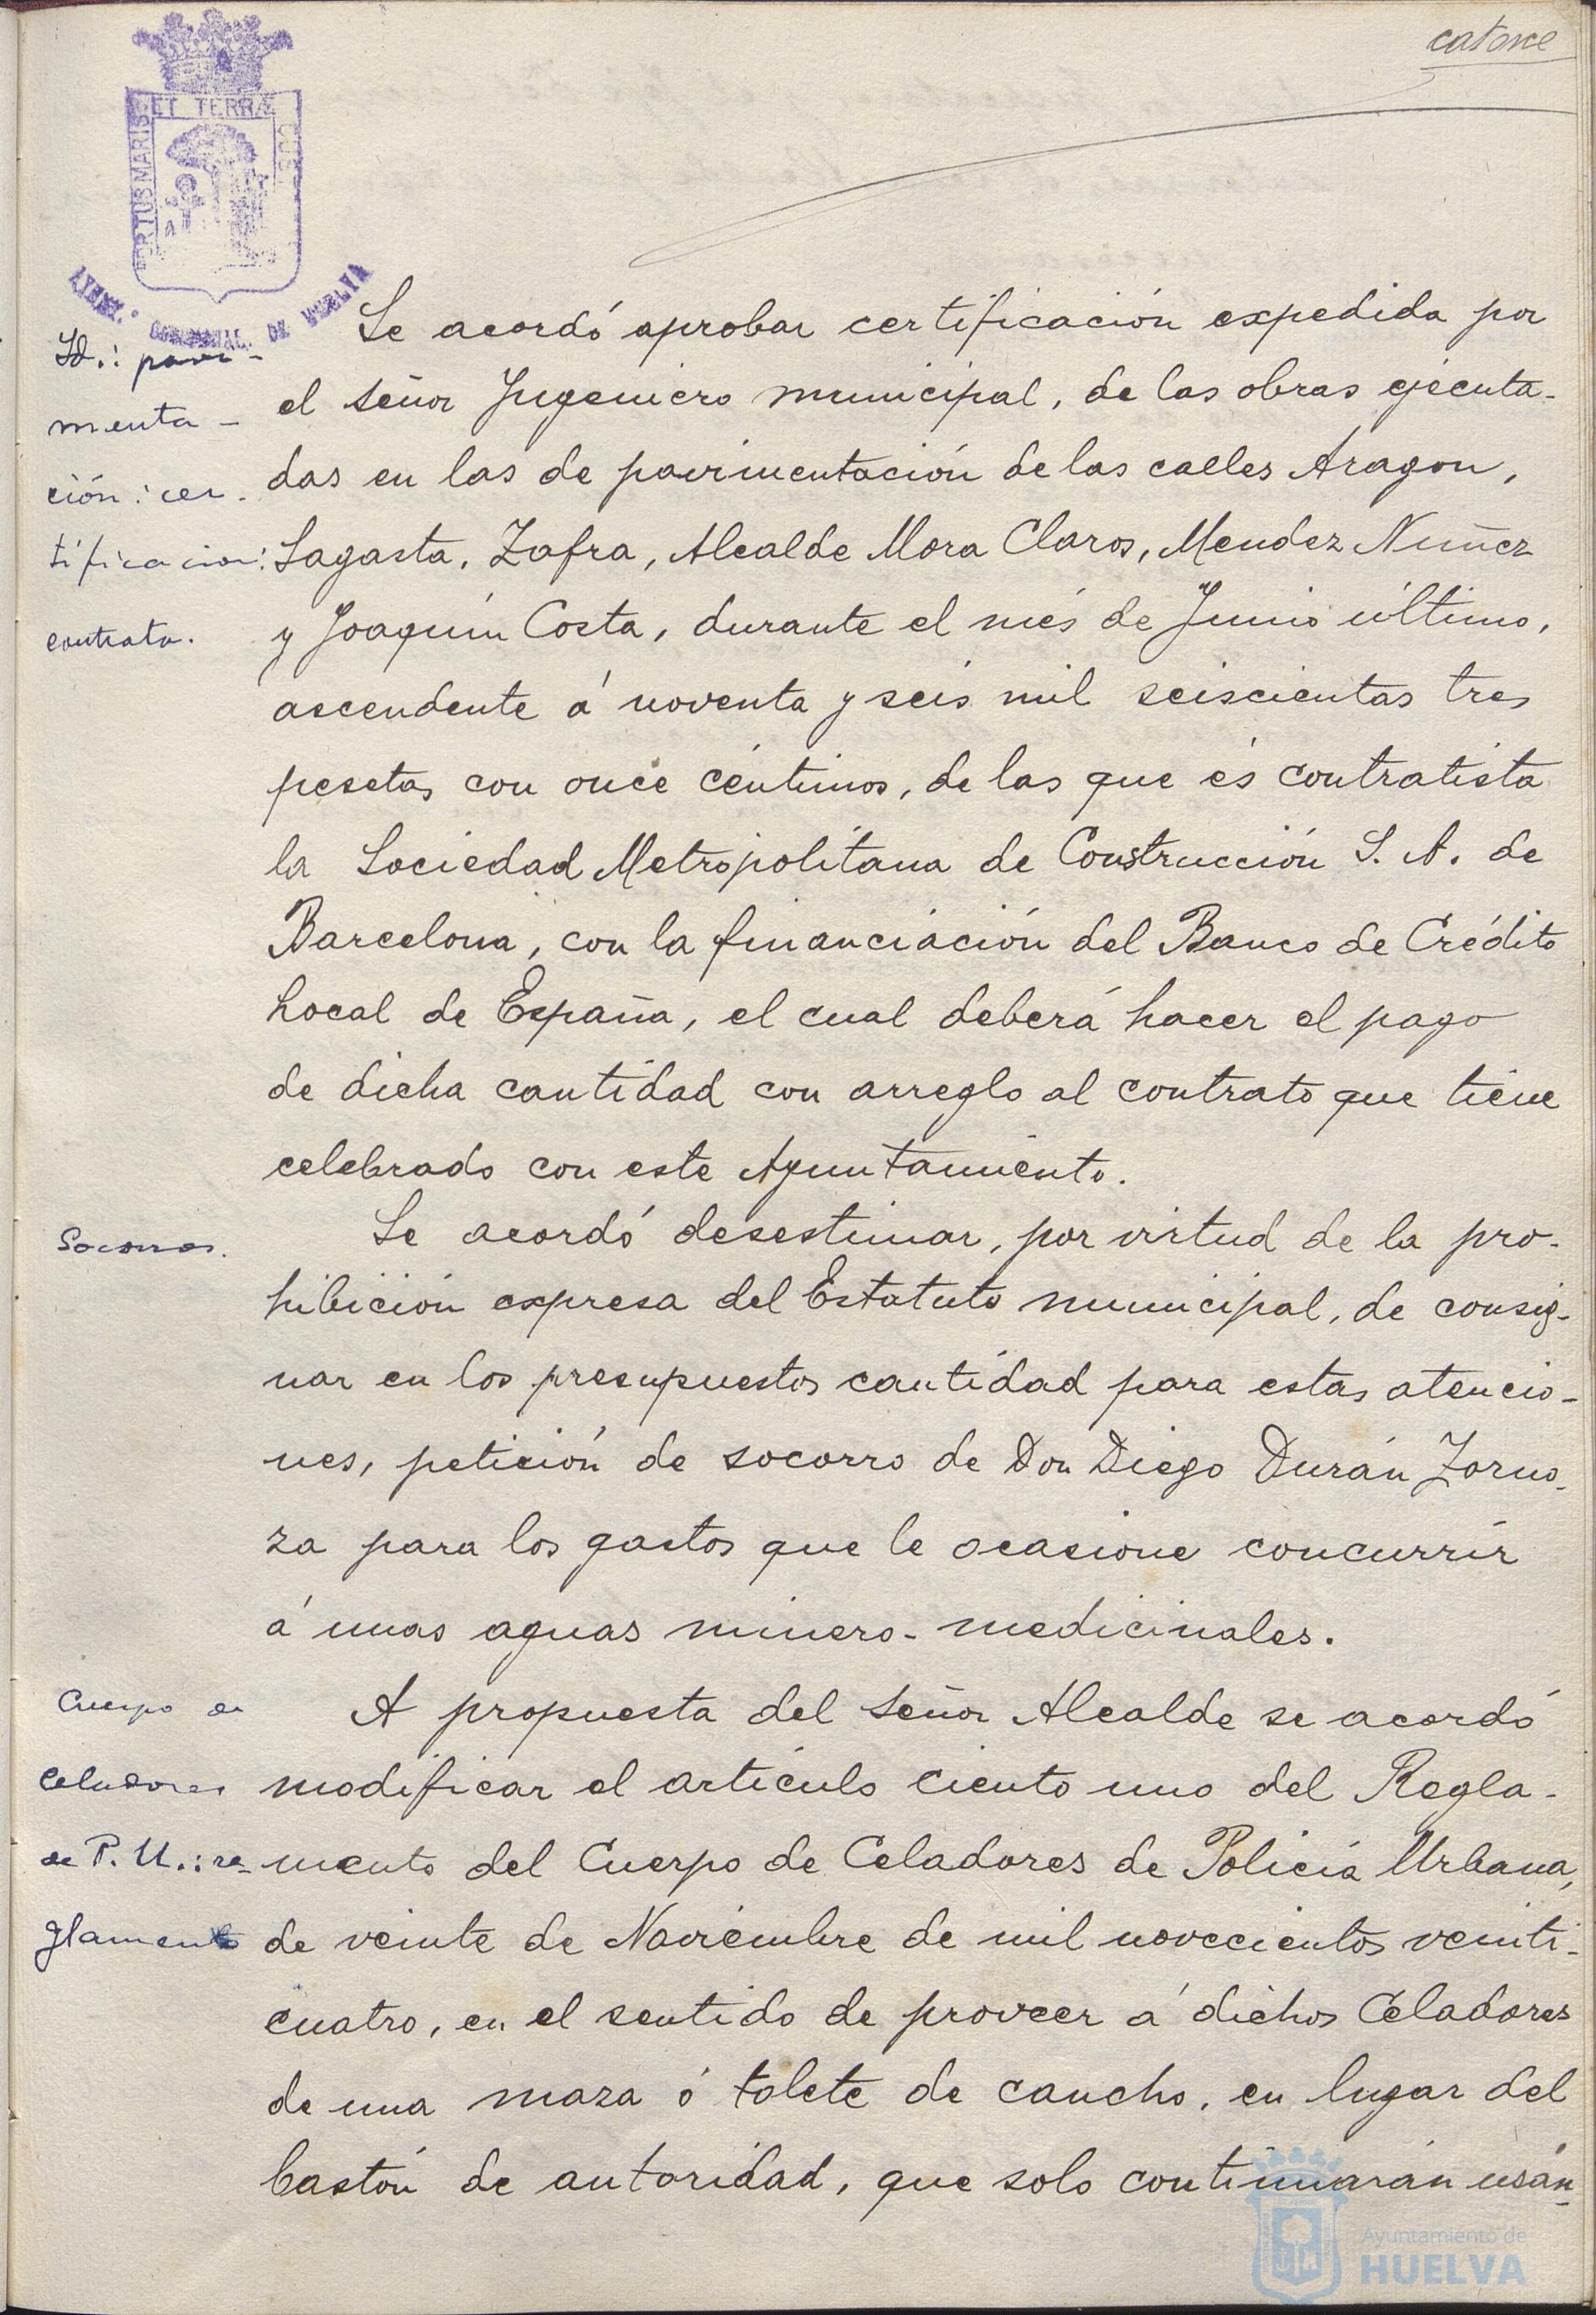 catorce
PORTUS MARIS ET TERRAE CUSTODIA
AYUNT.º CONSTITUCIONAL DE HUELVA
Id.: pavi-
menta-
ción: cer-
tificacion:
contrata.
Se acordó aprobar certificación expedida por
el señor Ingeniero municipal, de las obras ejecuta-
das en las de pavimentación de las calles Aragon,
Sagasta, Zafra, Alcalde Mora Claros, Mendez Nuñez
y Joaquín Costa, durante el més de Junio último,
ascendente á noventa y seis mil seiscientas tres
pesetas con once céntimos, de las que és contratista
la Sociedad Metropolitana de Construcción S. A. de
Barcelona, con la financiación del Banco de Crédito
Local de España, el cual deberá hacer el pago
de dicha cantidad con arreglo al contrato que tiene
celebrado con este Ayuntamiento.
Socorros.
Se acordó desestimar, por virtud de la pro-
hibición expresa del Estatuto municipal, de consig-
nar en los presupuestos cantidad para estas atencio-
nes, petición de socorro de Don Diego Durán Zorno-
za para los gastos que le ocasione concurrir
á unas aguas minero-medicinales.
Cuerpo de
Celadores
de P. U.: re-
glamento
A propuesta del señor Alcalde se acordó
modificar el artículo ciento uno del Regla-
mento del Cuerpo de Celadores de Policía Urbana,
de veinte de Noviembre de mil novecientos veinti-
cuatro, en el sentido de proveer á dichos Celadores
de una maza ó tolete de caucho, en lugar del
bastón de autoridad, que solo continuarán usán-
Ayuntamiento de
HUELVA